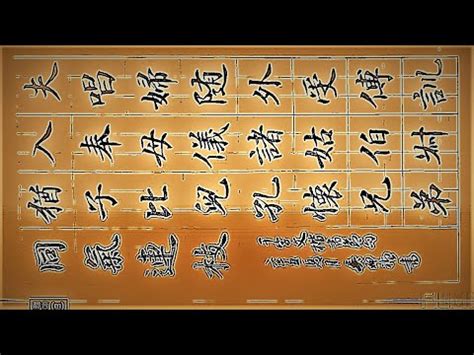 夫唱婦随外受傅訓
入奉母儀諸姑伯叔
猶子比兒孔懷兄弟
同氣連枝